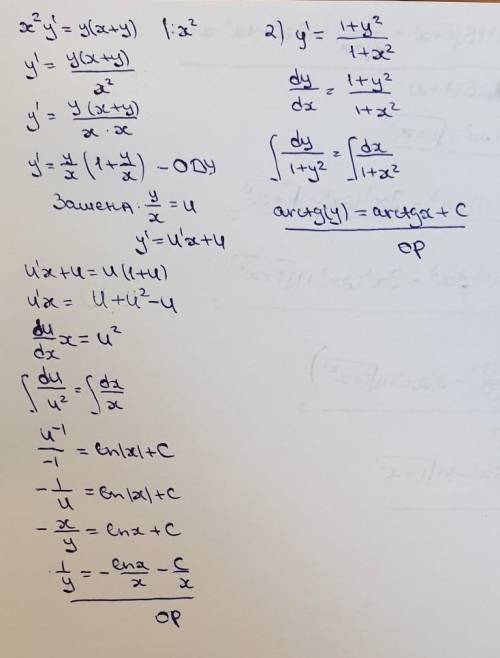 x²y' = y(x+y) |:x²
y' = y(x+y)/x²
y' = y(x+y)/(x·x)
y' = y/x (1 + y/x) – ОДУ
Замена: y/x = u
y' = u'x + u
u'x + u = u(1+u)
u'x = u + u² – u
du/dx x = u²
∫ du/u² = ∫ dx/x
u⁻¹/-1 = ln|x| + C
- 1/u = ln|x| + C
- x/y = lnx + C
1/y = - lnx/x - C/x
ОР
2) y' = (1+y²)/(1+x²)
dy/dx = (1+y²)/(1+x²)
∫ dy/(1+y²) = ∫ dx/(1+x²)
arctg(y) = arctgx + C
ОР